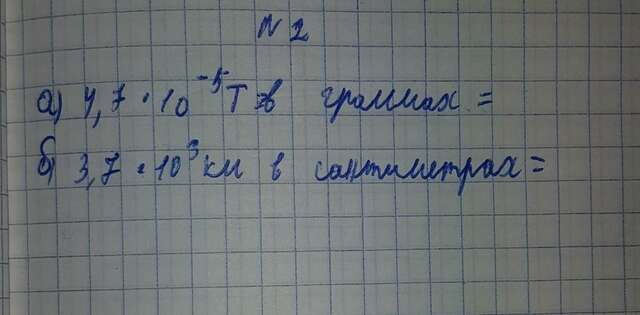 N 2
а) 4,7 · 10⁻⁵ Т в граммах =
б) 3,7 · 10³ км в сантиметрах =